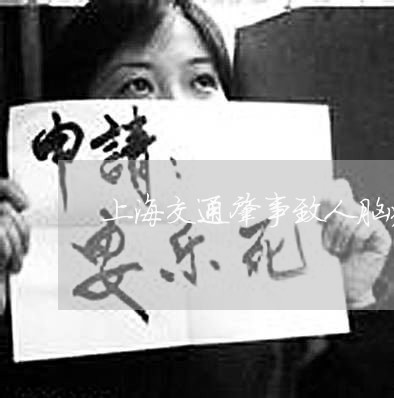 申請：
上海交通肇事致人脑
安乐死